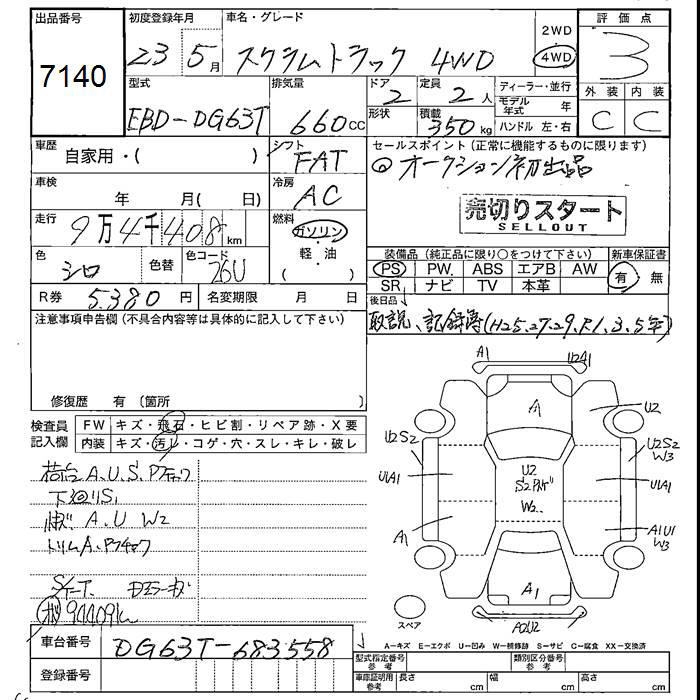 出品番号
7140
初度登録年月
23 5月
車名・グレード
スクラムトラック 4WD
2WD
4WD
評価点
3
外装 内装
C C
型式
EBD-DG63T
排気量
660cc
ドア
2
形状
定員
2人
積載
350kg
ディーラー・並行
モデル年式 年
ハンドル 左・右
車歴
自家用・( )
シフト
FAT
車検
年 月( 日)
冷房
AC
走行
9万4千408km
燃料
ガソリン
軽・油
( )
色
シロ
色替
色コード
26U
R券 5,380円
名変期限 月 日
セールスポイント(正常に機能するものに限ります)
◎オークション初出品
売切りスタート
SELLOUT
装備品(純正品に限り○をつけて下さい)
新車保証書
PS PW. ABS エアB AW
SR ナビ TV 本革
有 無
後日品
取説、記録簿(H25.27.29.R1.3.5年)
注意事項申告欄(不具合内容等は具体的に記入して下さい)
修復歴 有(箇所 )
検査員記入欄
FW キズ・飛石・ヒビ割・リペア跡・X要
内装 キズ・汚レ・コゲ・穴・スレ・キレ・破レ
荷台A.U.S.Pチョク
下廻リS.
A.U W2
トリムA.Pチョク
94409km
車台番号
DG63T-683558
登録番号
A1
U2A1
A1
U2
U2S2
U2S2
W3
U2
W2
U1A1
U1A1
A1
A1U1
W3
A1
A2U2
スペア
A-キズ E-エクボ U-凹み W-補修跡 S-サビ C-腐食 XX-交換済
型式指定番号
参考
類別区分番号
参考
車庫証明用
参考
長さ cm
幅 cm
高さ cm